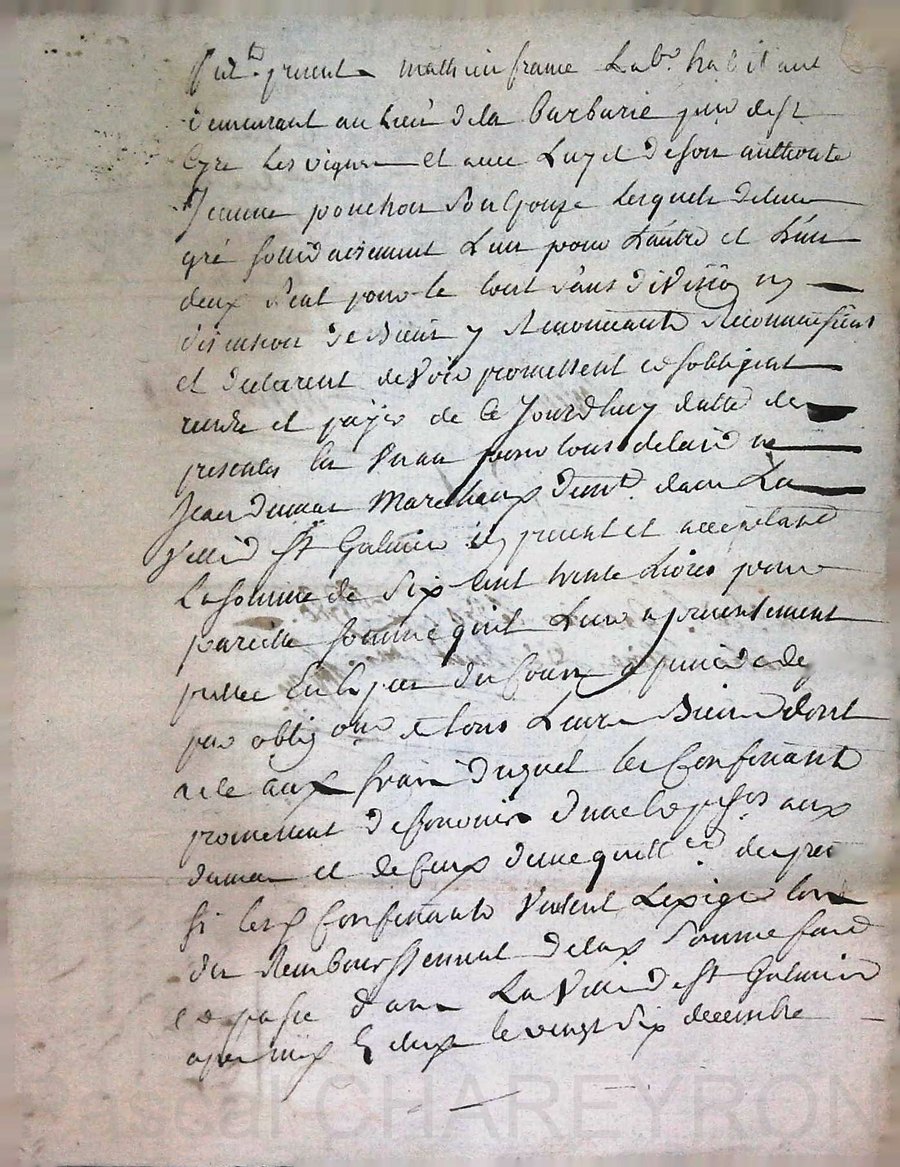 present mathieu france Lab.r habitant
demeurant au Lieu de la Barbarie de St
Cyre Les vignes Et avec Luy et de son authorité
Jeanne ponchon Son Epouse Lesquels de leur
gré sollidairement L'un pour L'autre et L'un
deux seul pour le tout sans division ny
discution de Biens y Renonceants Reconnoissent
et declarent devoir promettent et sobligent
rendre et payer de ce Jourdhuy datte des
presentes En un an pour tous delaid a
Jean dumas Marechaux demt. dans La
ville de St Galmier icy present et acceptant
La somme de Six Cent trente Livres pour
pareille somme qu'il Leur a presentement
prette En Espece du Cours a peine de
par oblig.on de tous Leurs Biens dont
acte aux frais duquel les Confessants
promettent de fournir d'une Expe.on aux
dumas et de Ceux d'une quitt.ce du pret
si lesd Confessants Veulent L'exiger lors
du Remboursement de lad Somme fait
et passé dans La Ville de St Galmier
apres midy Le vingt Six decembre
Pascal CHAREYRON